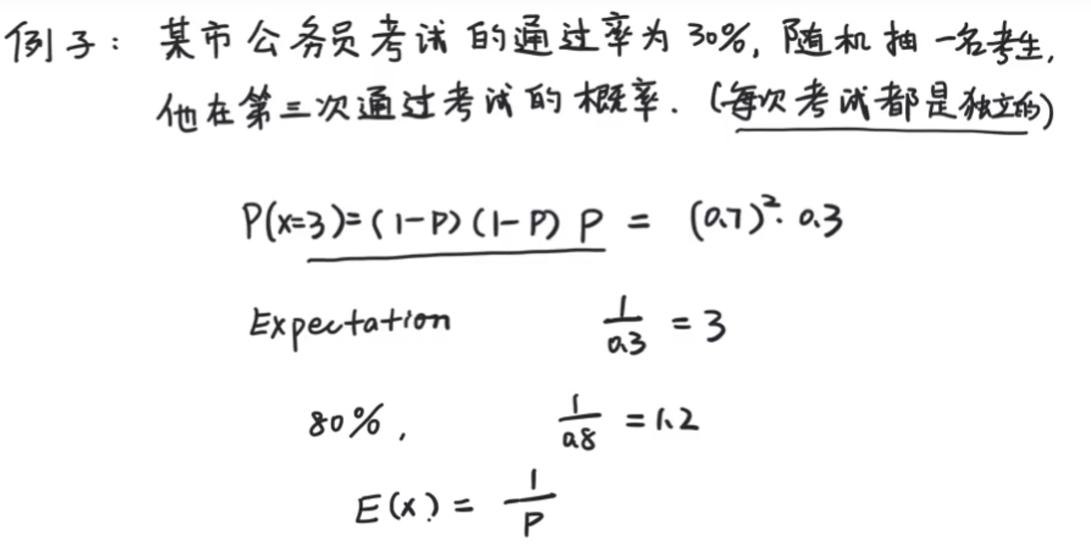 例子： 某市公务员考试的通过率为30%, 随机抽一名考生,
他在第三次通过考试的概率. (每次考试都是独立的)
P(x=3)=(1-P)(1-P) P = (0.7)²· 0.3
Expectation 1/0.3 = 3
80%, 1/0.8 = 1.2
E(x) = 1/P